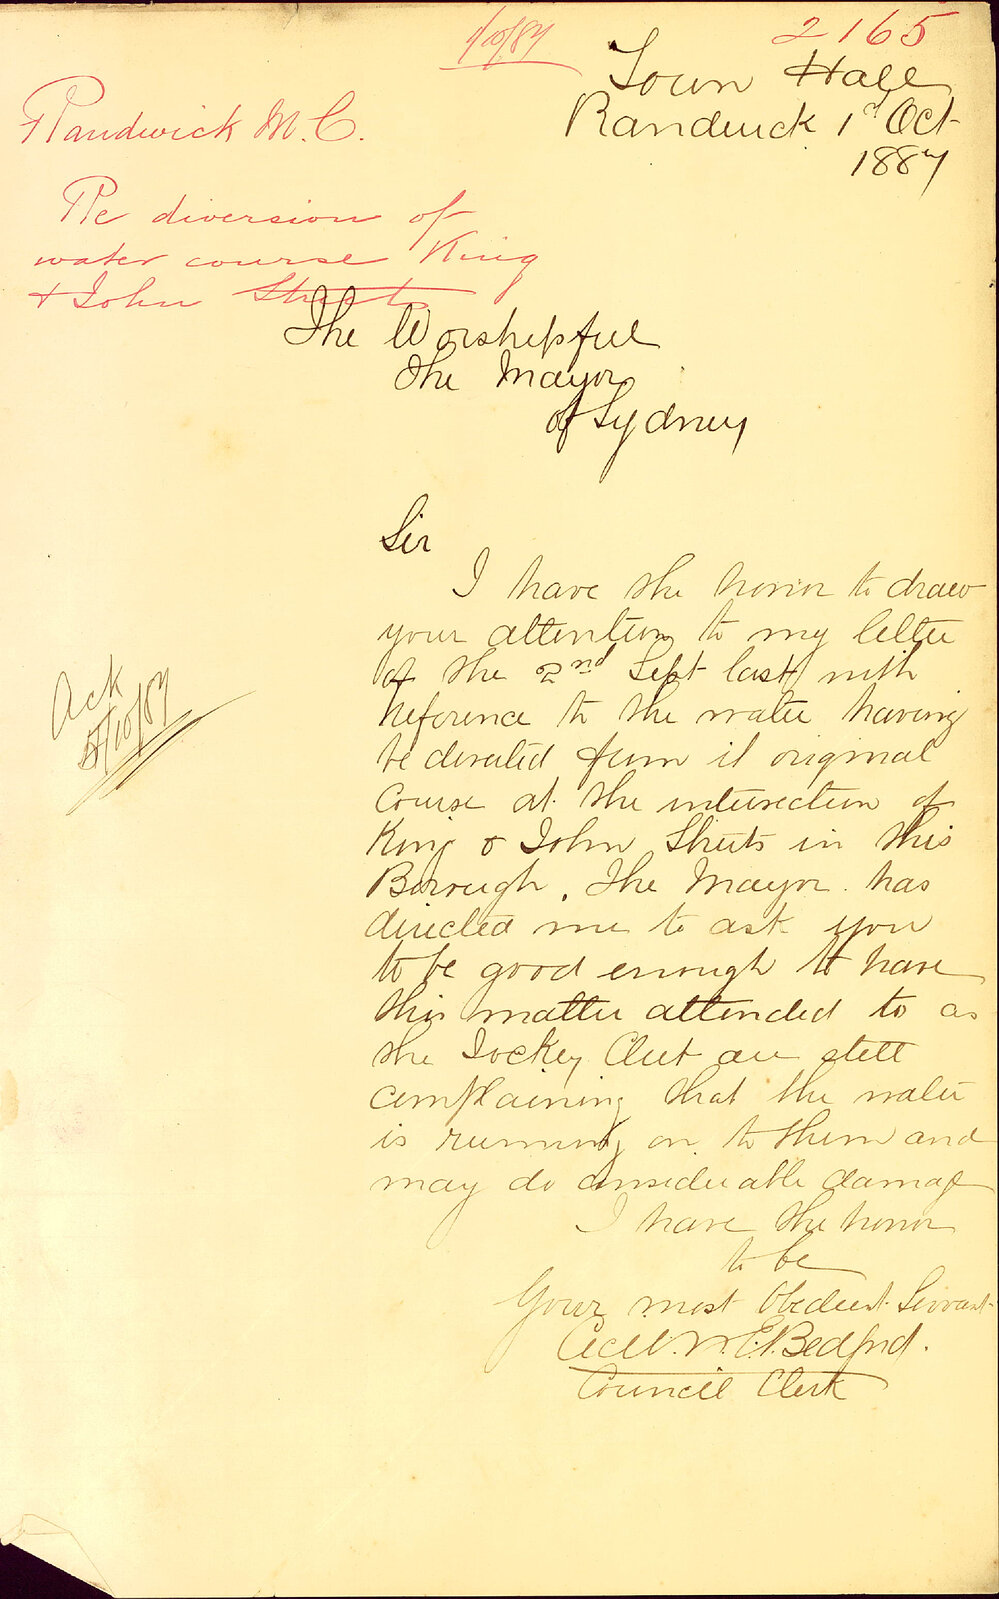 1/10/87
2165
Town Hall
Randwick 1st Oct
1887
Randwick M.C.
Re diversion of
water course King
& John Streets
The Worshipful
The Mayor
of Sydney
Sir
I have the honor to draw
your attention to my letter
of the 2nd Sept last with
reference to the water having
be deviated from it original
Course at the intersection of
King & John Streets in this
Borough. The Mayor has
directed me to ask you
to be good enough to have
this matter attended to as
the Jockey Club are still
complaining that the water
is running on to them and
may do considerable damage
I have the honor
to be
Your most Obedient Servant
Bedford.
Council Clerk
Ack
/10/87